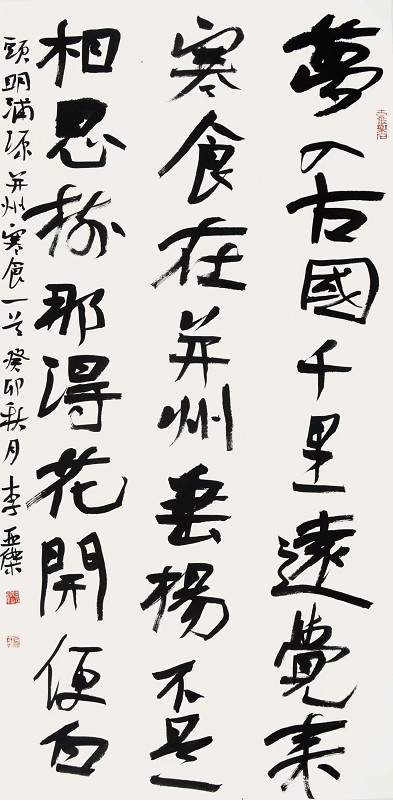 夢入古國千里遠覺來
寒食在并州垂楊不是
相思樹那得花開便白
頭明浦源并州寒食一首癸卯秋月李亞